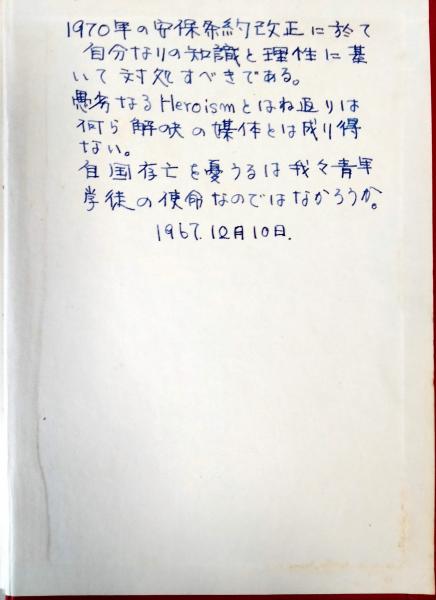 1970年の安保条約改正に於て
自分なりの知識と理性に基
いて対処すべきである。
愚劣なるHeroismとはね返りは
何ら解決の媒体とは成り得
ない。
自国存亡を憂うるは我々青年
学徒の使命なのではなかろうか。
1967.12月10日.